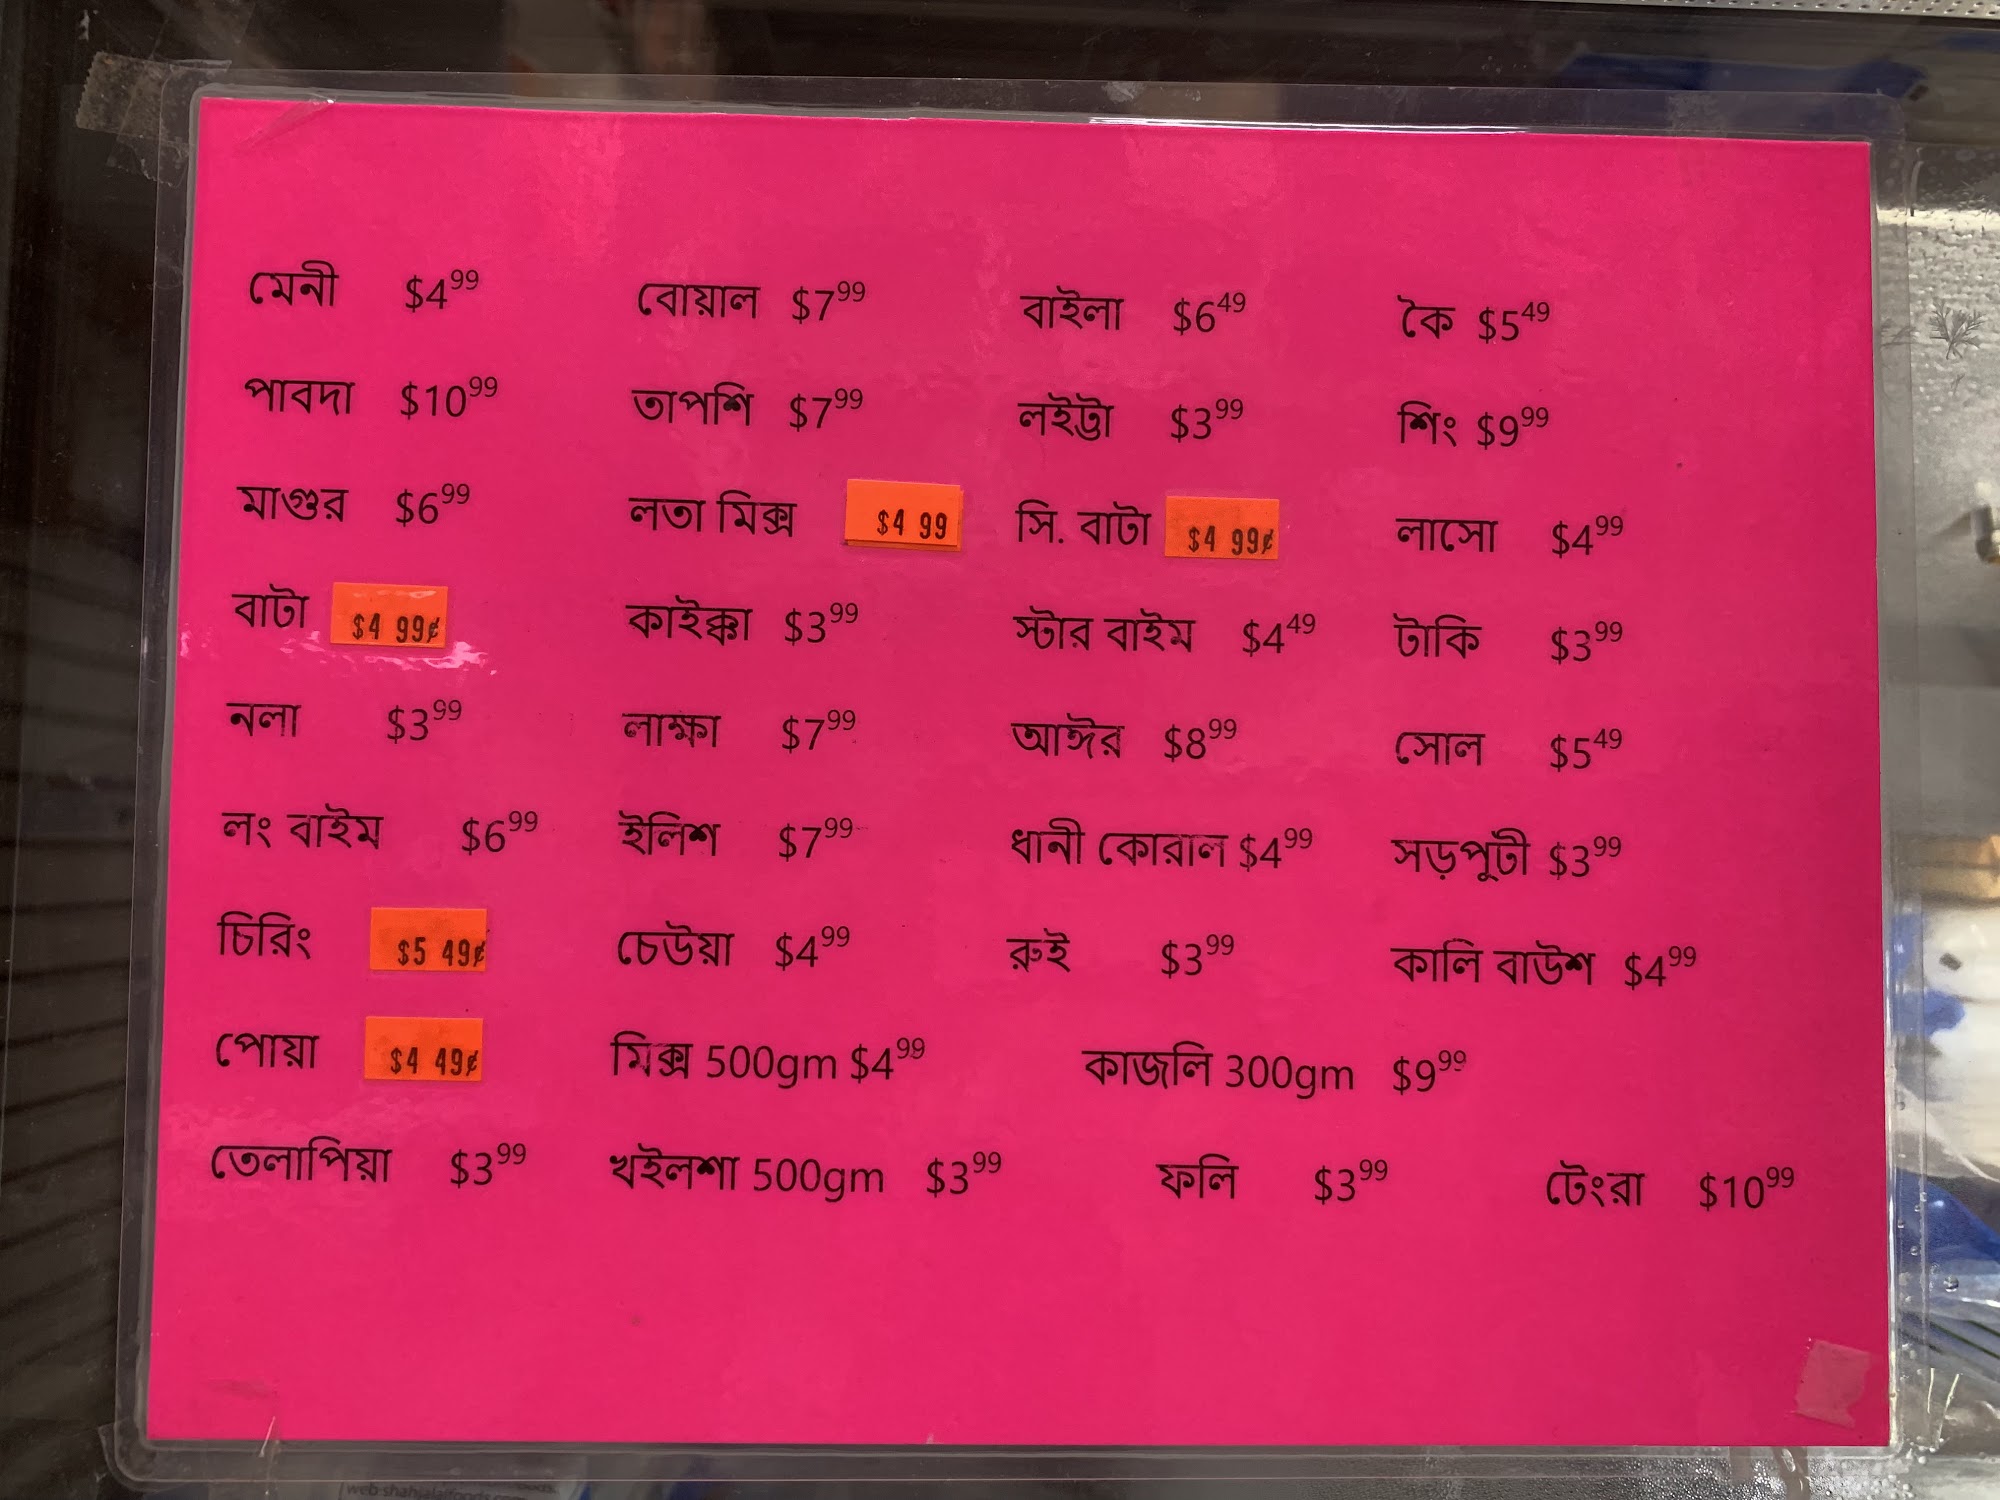 মেনী $4⁹⁹ বোয়াল $7⁹⁹ বাইলা $6⁴⁹ কৈ $5⁴⁹
পাবদা $10⁹⁹ তাপশি $7⁹⁹ লইট্টা $3⁹⁹ শিং $9⁹⁹
মাগুর $6⁹⁹ লতা মিক্স $4 99 সি. বাটা $4 99¢ লাসো $4⁹⁹
বাটা $4 99¢ কাইক্কা $3⁹⁹ স্টার বাইম $4⁴⁹ টাকি $3⁹⁹
নলা $3⁹⁹ লাক্ষা $7⁹⁹ আঈর $8⁹⁹ সোল $5⁴⁹
লং বাইম $6⁹⁹ ইলিশ $7⁹⁹ ধানী কোরাল $4⁹⁹ সড়পুটী $3⁹⁹
চিরিং $5 49¢ চেউয়া $4⁹⁹ রুই $3⁹⁹ কালি বাউশ $4⁹⁹
পোয়া $4 49¢ মিক্স 500gm $4⁹⁹ কাজলি 300gm $9⁹⁹
তেলাপিয়া $3⁹⁹ খইলশা 500gm $3⁹⁹ ফলি $3⁹⁹ টেংরা $10⁹⁹